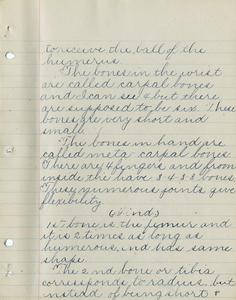 to receive the ball of the
humerus.
The bones in the wrist
are called carpal bones
and I can see 4 but there
are supposed to be six. These
bones are very short and
small.
The bones in hand are
called meta carpal bones.
There are 4 fingers and from
inside the have 3 4 3 3 bones
These numerous joints give
flexibility.
(Hind)
1st bone is the femur and
it is 2 times as long as
humerous, and has same
shape.
The 2nd bone or tibia
corresponds to radius, but
instedd of being short &